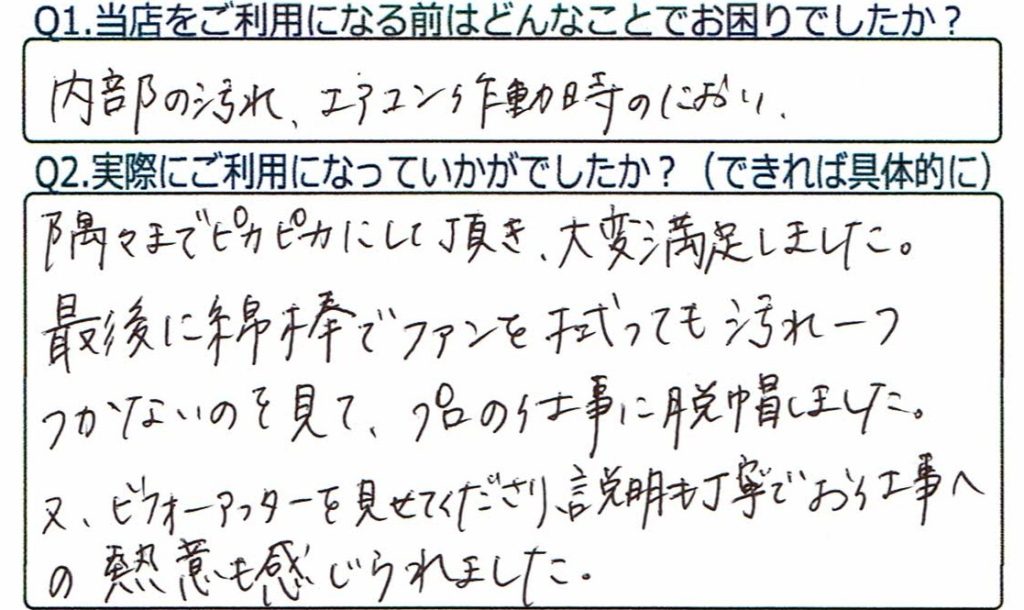 Q1.当店をご利用になる前はどんなことでお困りでしたか？
内部の汚れ、エアコン作動時のにおい、
Q2.実際にご利用になっていかがでしたか？（できれば具体的に）
隅々までピカピカにして頂き、大変満足しました。
最後に綿棒でファンを拭っても汚れ一つ
つかないのを見て、プロの仕事に脱帽しました。
又、ビフォーアフターを見せてくださり、説明も丁寧でお仕事へ
の熱意も感じられました。